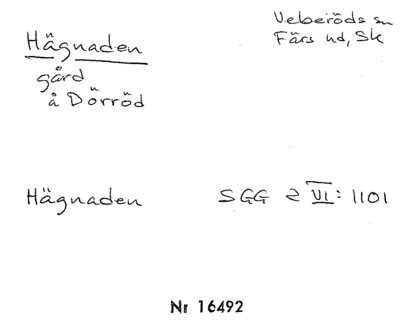 Hägnaden
gård
å Dörröd
Veberöds sn
Färs hd, Sk
Hägnaden SGG 2 VI: 1101
Nr 16492